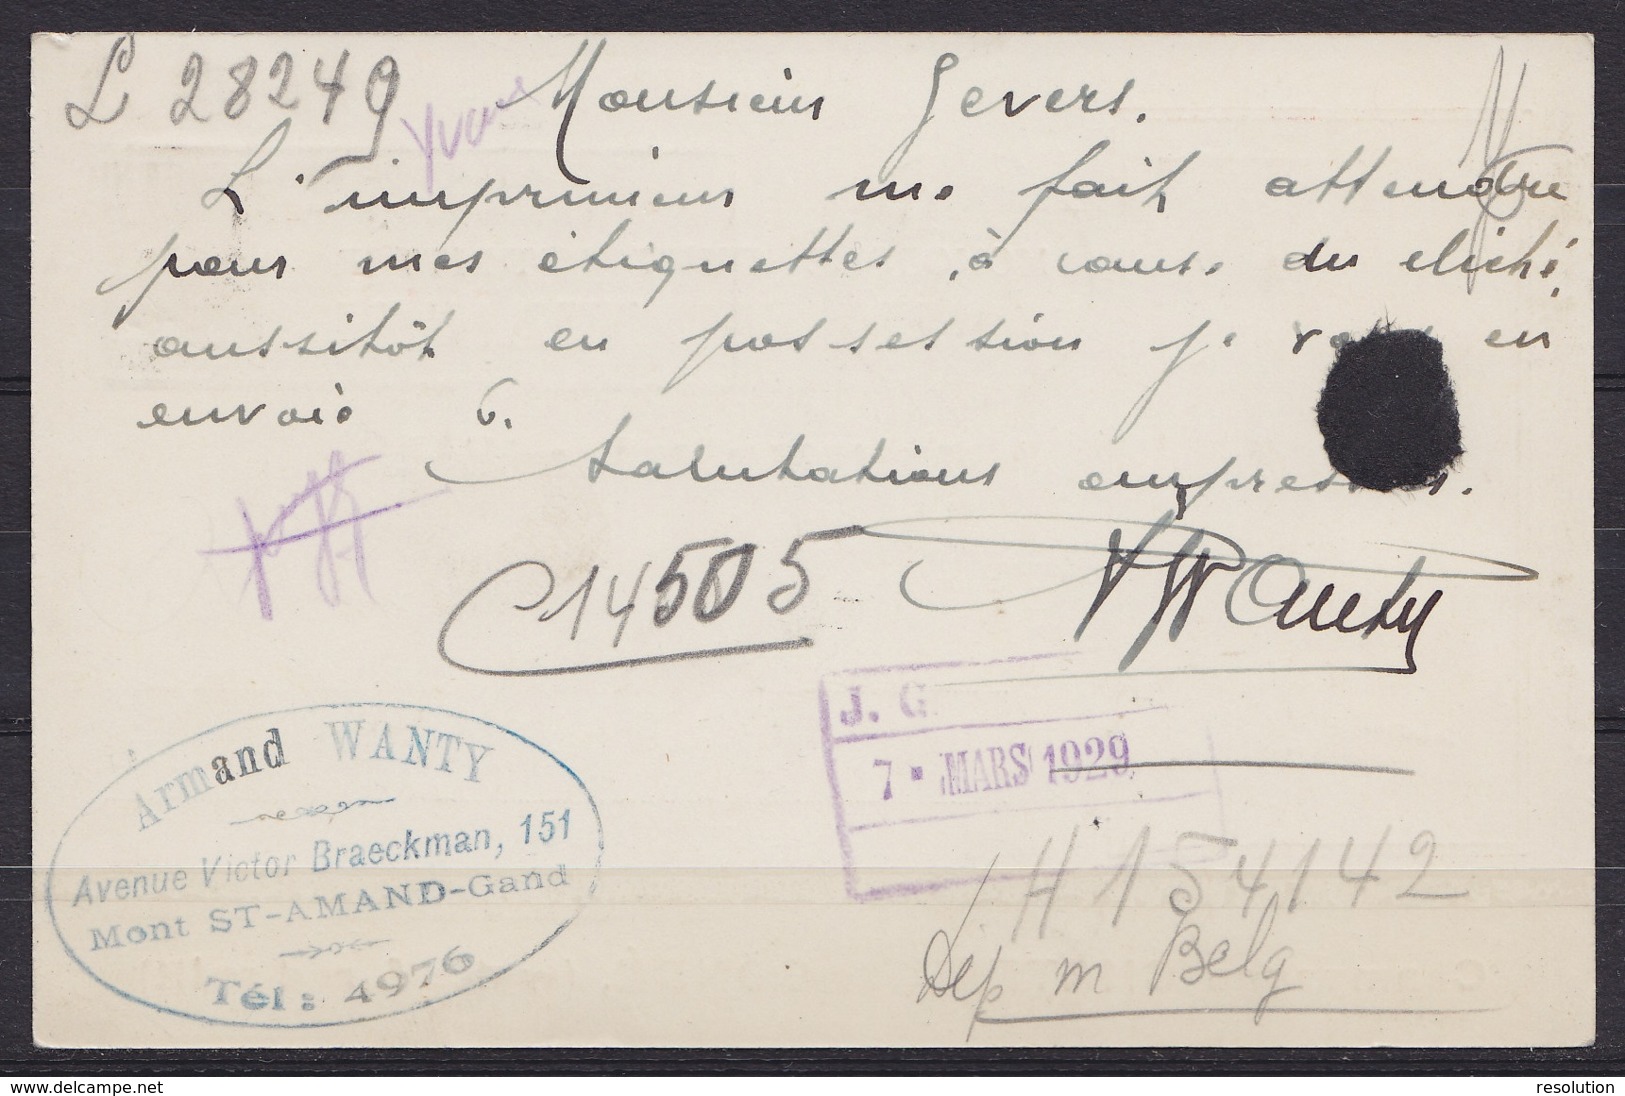 L 28249
Monsieur Gevers.
Yvans
L'imprimeur me fait attendre
pour mes étiquettes, à cause du cliché,
aussitôt en possession je vous en
envoie 6.
Salutations empressées.
C14505
Wanty
J. G
7 - MARS 1929
Armand WANTY
Avenue Victor Braeckman, 151
Mont ST-AMAND-Gand
Tél: 4976
H 154142
Dep m Belg
www.delcampe.net
resolution